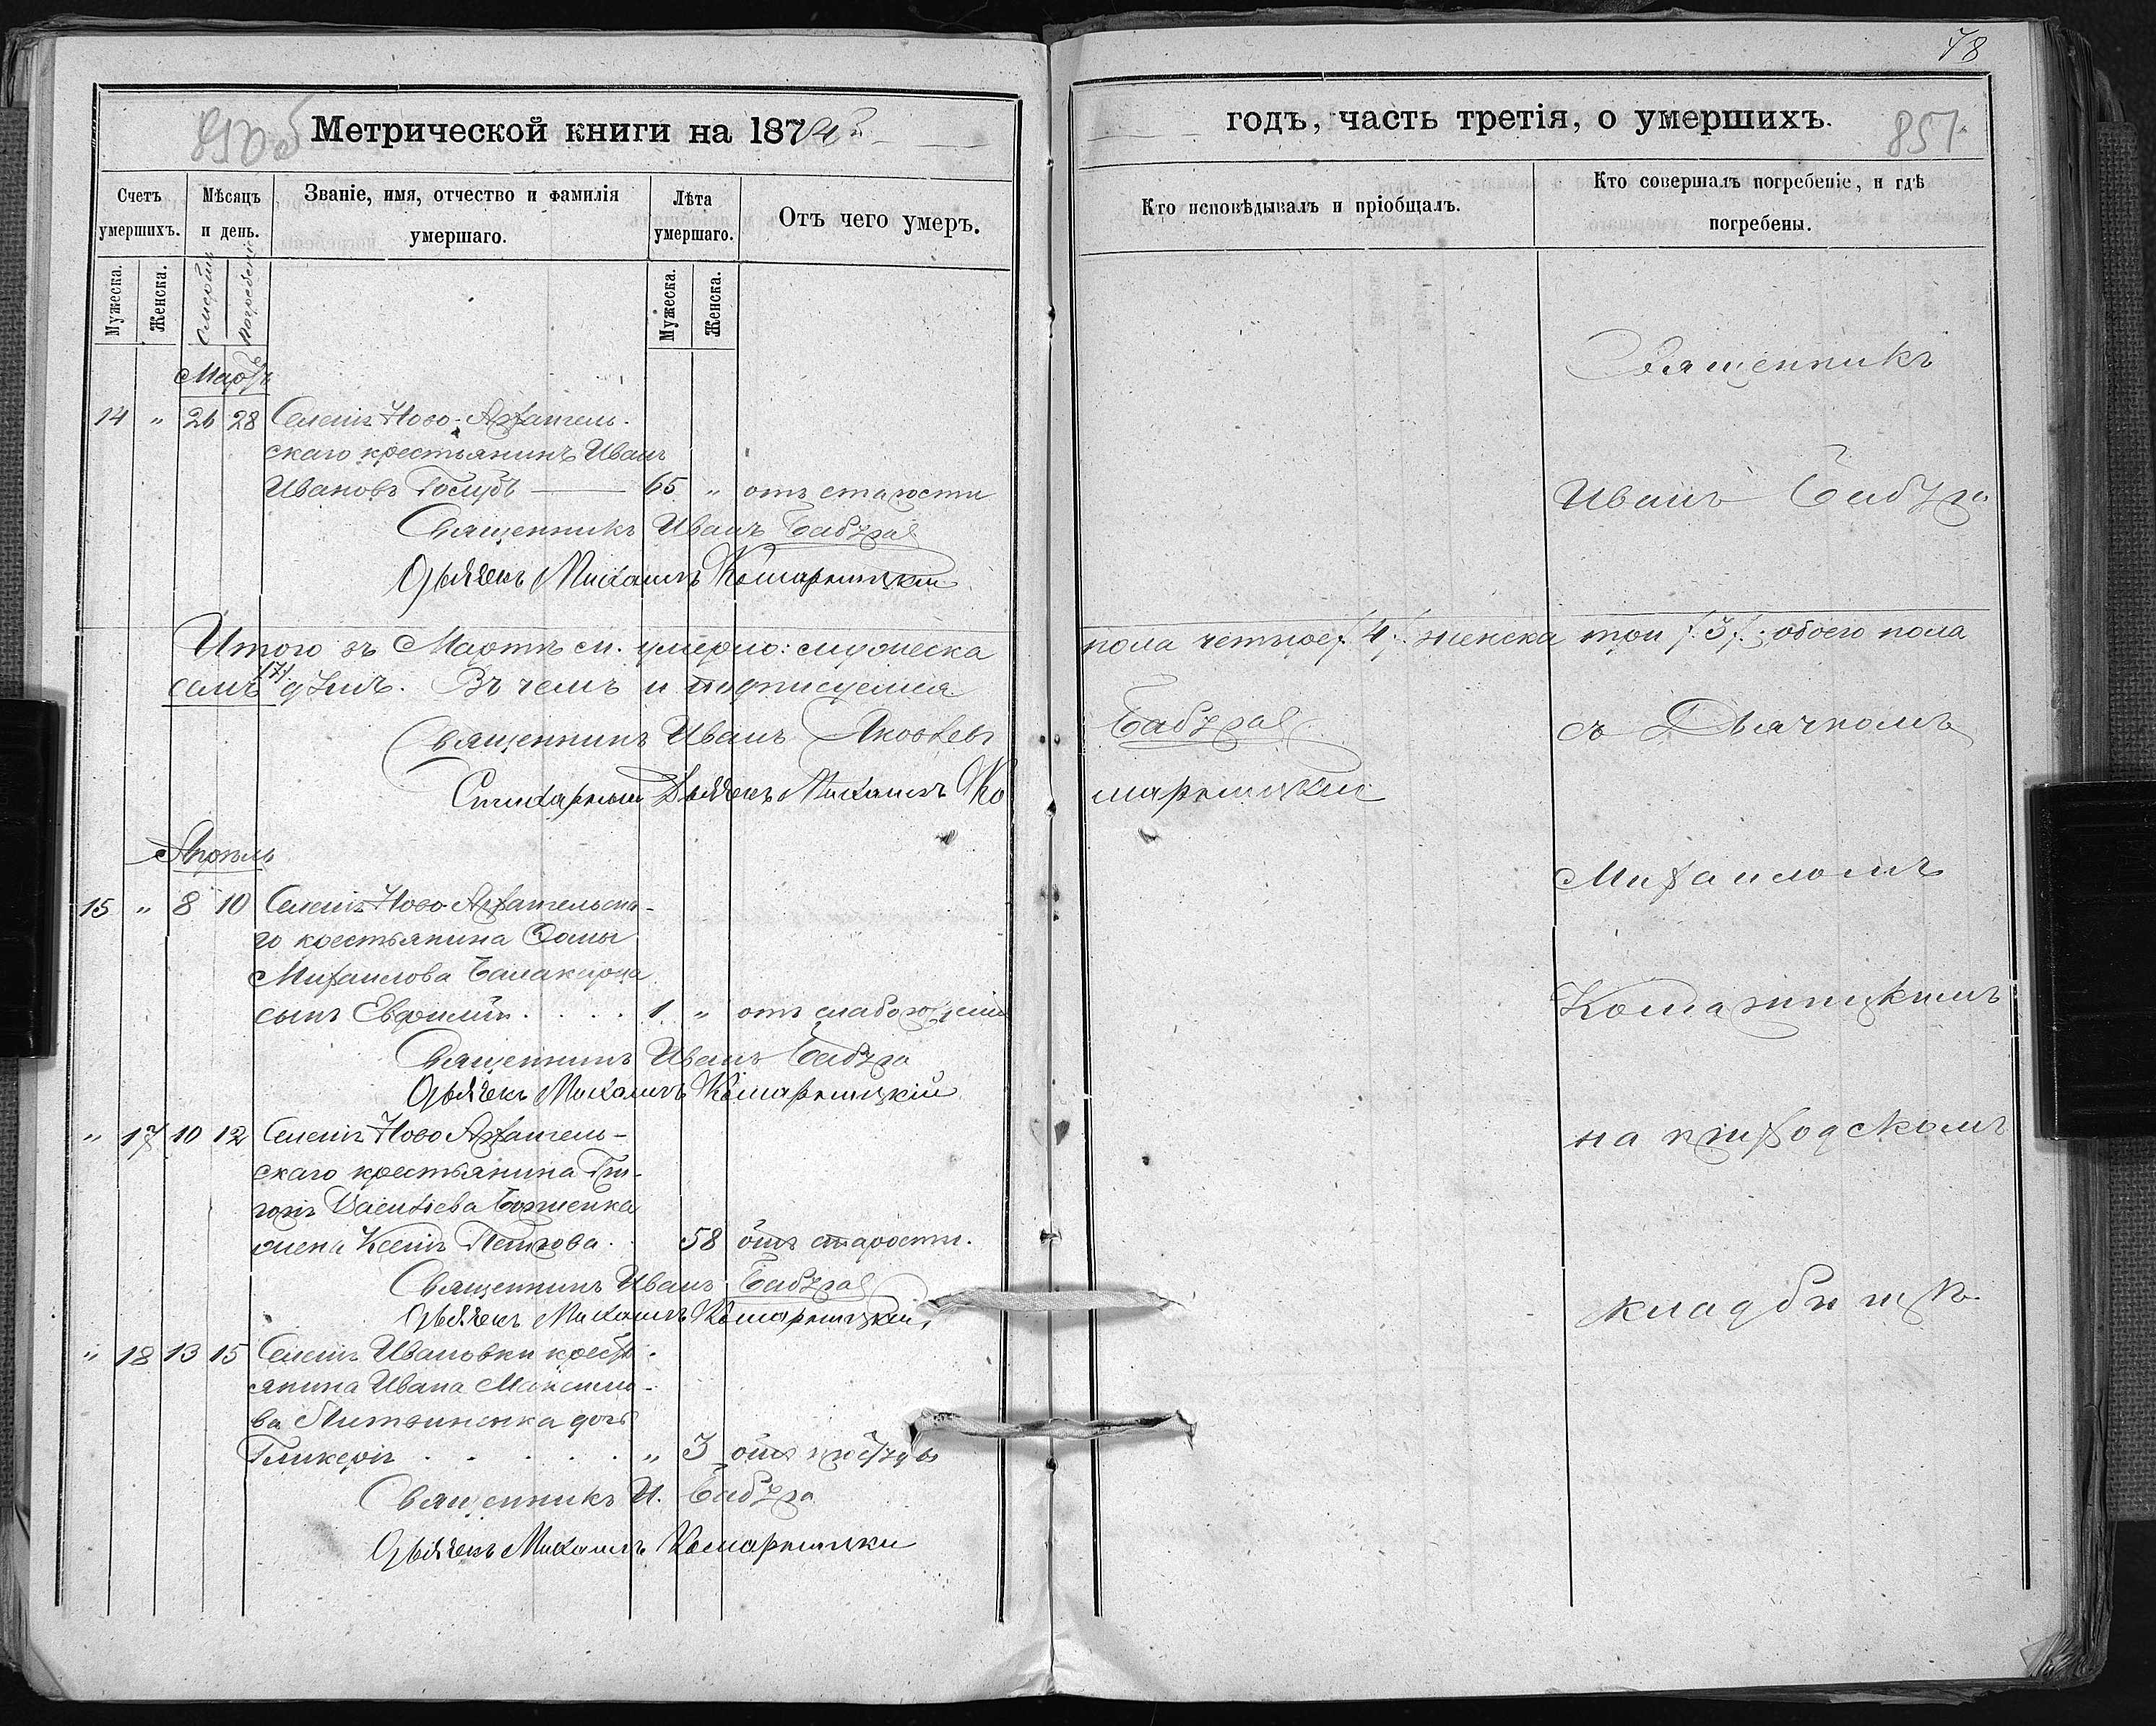 78
850 об Метрической книги на 1874й
годъ, часть третія, о умершихъ. 851
Счетъ умершихъ.
Мѣсяцъ и день.
Званіе, имя, отчество и фамилія умершаго.
Лѣта умершаго.
Отъ чего умеръ.
Кто исповѣдывалъ и пріобщалъ.
Кто совершалъ погребеніе, и гдѣ погребены.
Мужеска.
Женска.
Смерти
Погребенія
Мужеска.
Женска.
Мартъ
14 " 26 28 Селенія Ново-Архангель-
скаго крестьянинъ Иванъ
Ивановъ Голубъ — 65 " отъ старости
Священникъ Иванъ Бабура
Дьячекъ Михаилъ Комарницкій
Итого въ Мартѣ м. умерло: мужеска
пола четыре /4/. женска три /3/. обоего пола
семь /7/ душъ. Въ чемъ и подписуемся
Священникъ Иванъ Яковлевъ
Бабура
Стихарный Дьячекъ Михаилъ Ко
марницкій
Апрѣль
15 " 8 10 Селенія Ново Архангельска-
го крестьянина Фомы
Михаилова
сынъ Евфимій . . . . 1 " отъ слабо
Священникъ Иванъ Бабура
Дьячекъ Михаилъ Комарницкій
" 17 10 12 Селенія Ново Архангель-
скаго крестьянина Гри-
горія Васильева
жена Ксенія Петрова . . 58 отъ старости.
Священникъ Иванъ Бабура
Дьячекъ Михаилъ Комарницкій
" 18 13 15 Селенія Ивановки кресть-
янина Ивана Максимо-
ва Литвиненка дочь
Гликерія . . . . . " 3 отъ
Священникъ И. Бабура
Дьячекъ Михаилъ Комарницкій
Священникъ
Иванъ Бабура
съ Дьячкомъ
Михаиломъ
Комарницкимъ
на приходскомъ
кладбищѣ